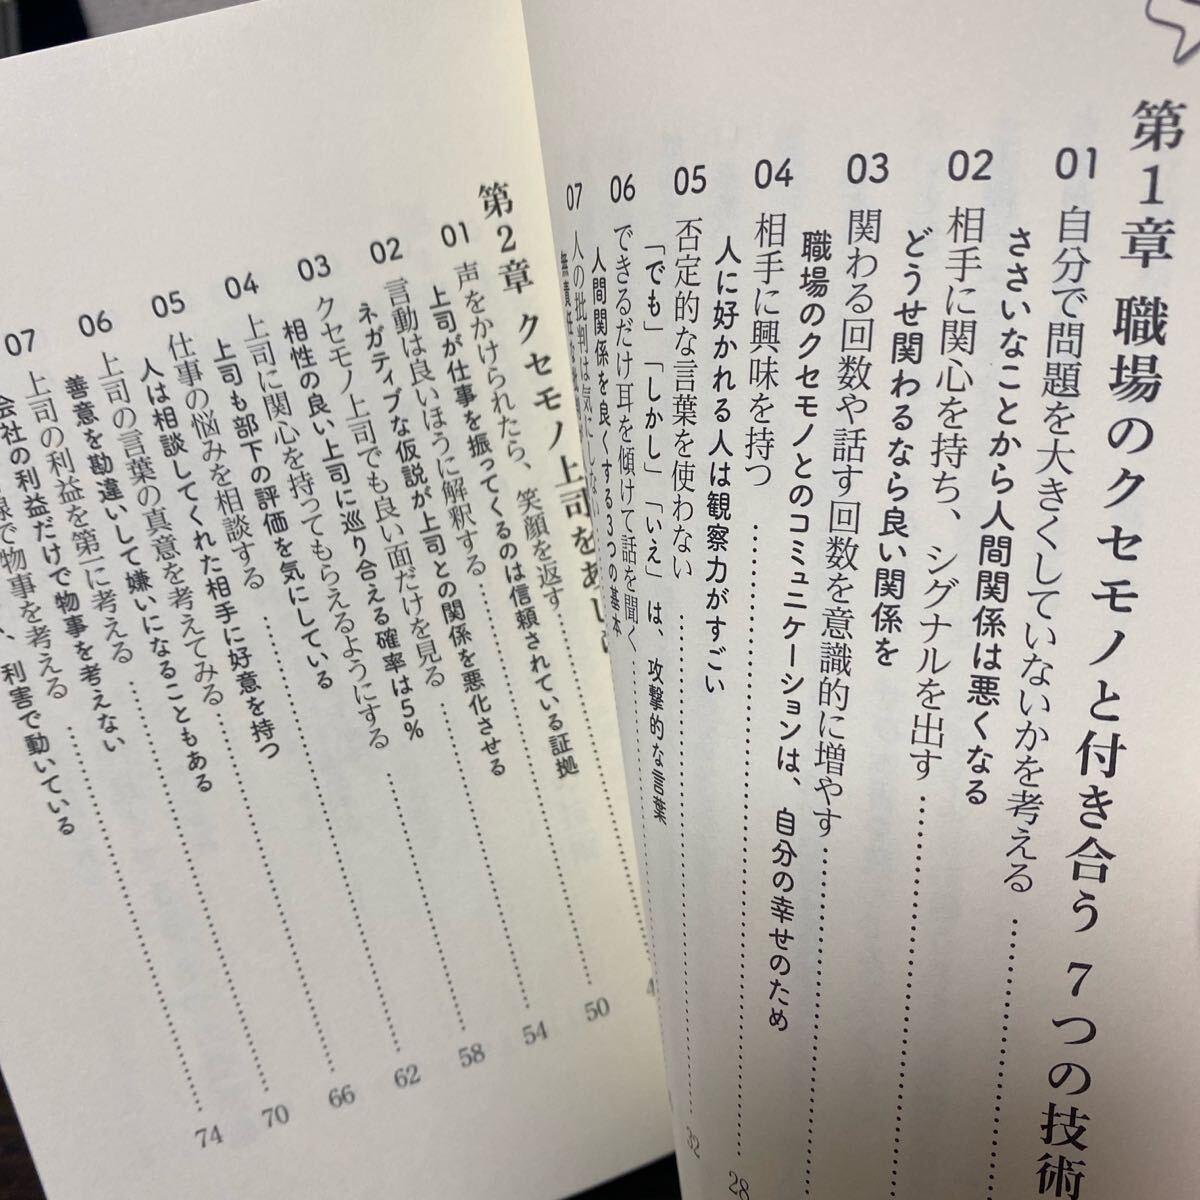 第1章 職場のクセモノと付き合う 7つの技術
01 自分で問題を大きくしていないかを考える
ささいなことから人間関係は悪くなる
02 相手に関心を持ち、シグナルを出す
どうせ関わるなら良い関係を
03 関わる回数や話す回数を意識的に増やす
職場のクセモノとのコミュニケーションは、自分の幸せのため
04 相手に興味を持つ
人に好かれる人は観察力がすごい 28
05 否定的な言葉を使わない 32
「でも」「しかし」「いえ」は、攻撃的な言葉
06 できるだけ耳を傾けて話を聞く
人間関係を良くする3つの基本
07 人の批判は気にしない
無責任な
第2章 クセモノ上司を
01 声をかけられたら、笑顔を返す 50
上司が仕事を振ってくるのは信頼されている証拠
02 言動は良いほうに解釈する 54
ネガティブな仮説が上司との関係を悪化させる
03 クセモノ上司でも良い面だけを見る 58
相性の良い上司に巡り合える確率は5%
04 上司に関心を持ってもらえるようにする 62
上司も部下の評価を気にしている
05 仕事の悩みを相談する 66
人は相談してくれた相手に好意を持つ
06 上司の言葉の真意を考えてみる 70
善意を勘違いして嫌いになることもある
07 上司の利益を第一に考える 74
会社の利益だけで物事を考えない
線で物事を考える
、利害で動いている